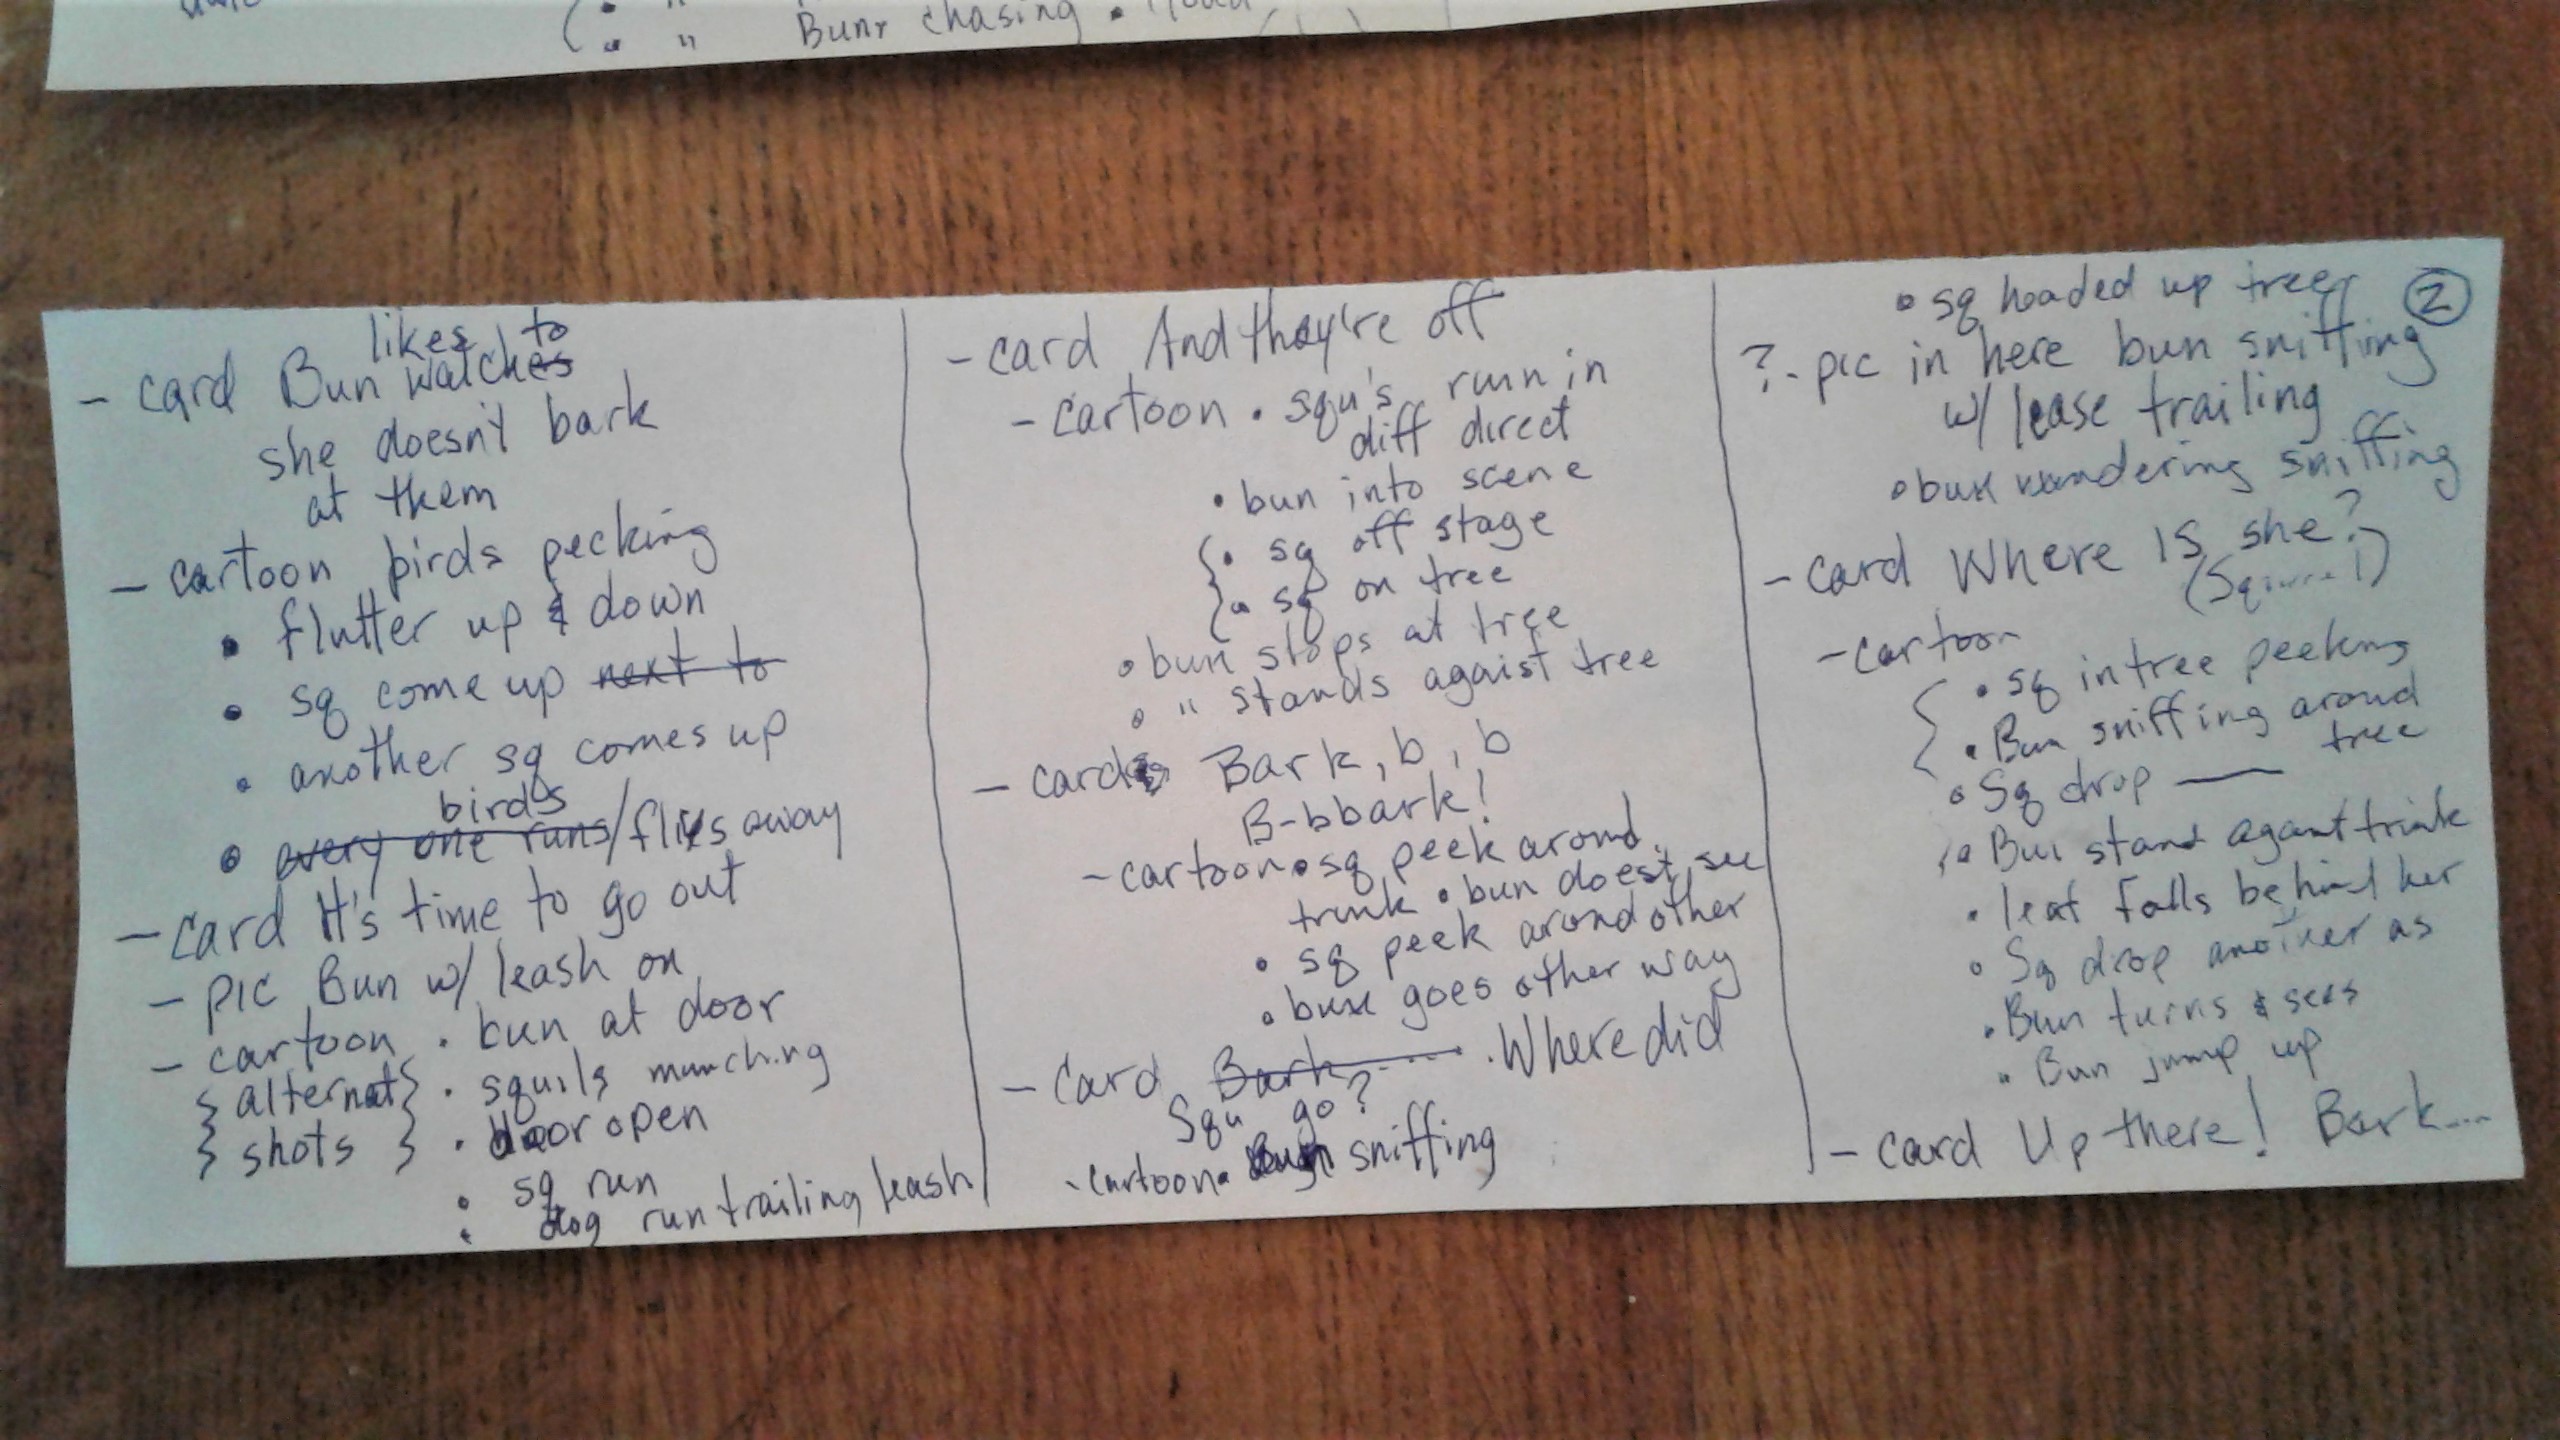 " Bunr chasing •
likes to
- card Bun watches
she doesn't bark
at them
- cartoon birds pecking
• flutter up & down
• sq come up next to
• another sq comes up
birds
• every one runs/flys away
- card It's time to go out
- pic Bun w/ leash on
- cartoon • bun at door
{ alternat } • squils munching
{ shots } • door open
• sq run
• dog run trailing leash
- card And they're off
- cartoon • squ's run in
diff direct
• bun into scene
{ • sq off stage
{ • sq on tree
• bun stops at tree
• " stands agaist tree
- card Bark, b, b
B-bbark!
- cartoon • sq peek around
trunk • bun doest see
• sq peek around other
• bun goes other way
- Card Bark ---- . Where did
Squ go?
- cartoon • sniffing
2
• sq headed up tree
? - pic in here bun sniffing
w/ lease trailing
• bun wandering sniffing
- card Where is she?
(Squirrel)
- cartoon
{ • sq in tree peeking
{ • Bun sniffing around
tree
• Sq drop —
• Bun stand against trunk
• leaf falls behind her
• Sq drop another as
• Bun turns & sees
• Bun jump up
- card Up there! Bark...